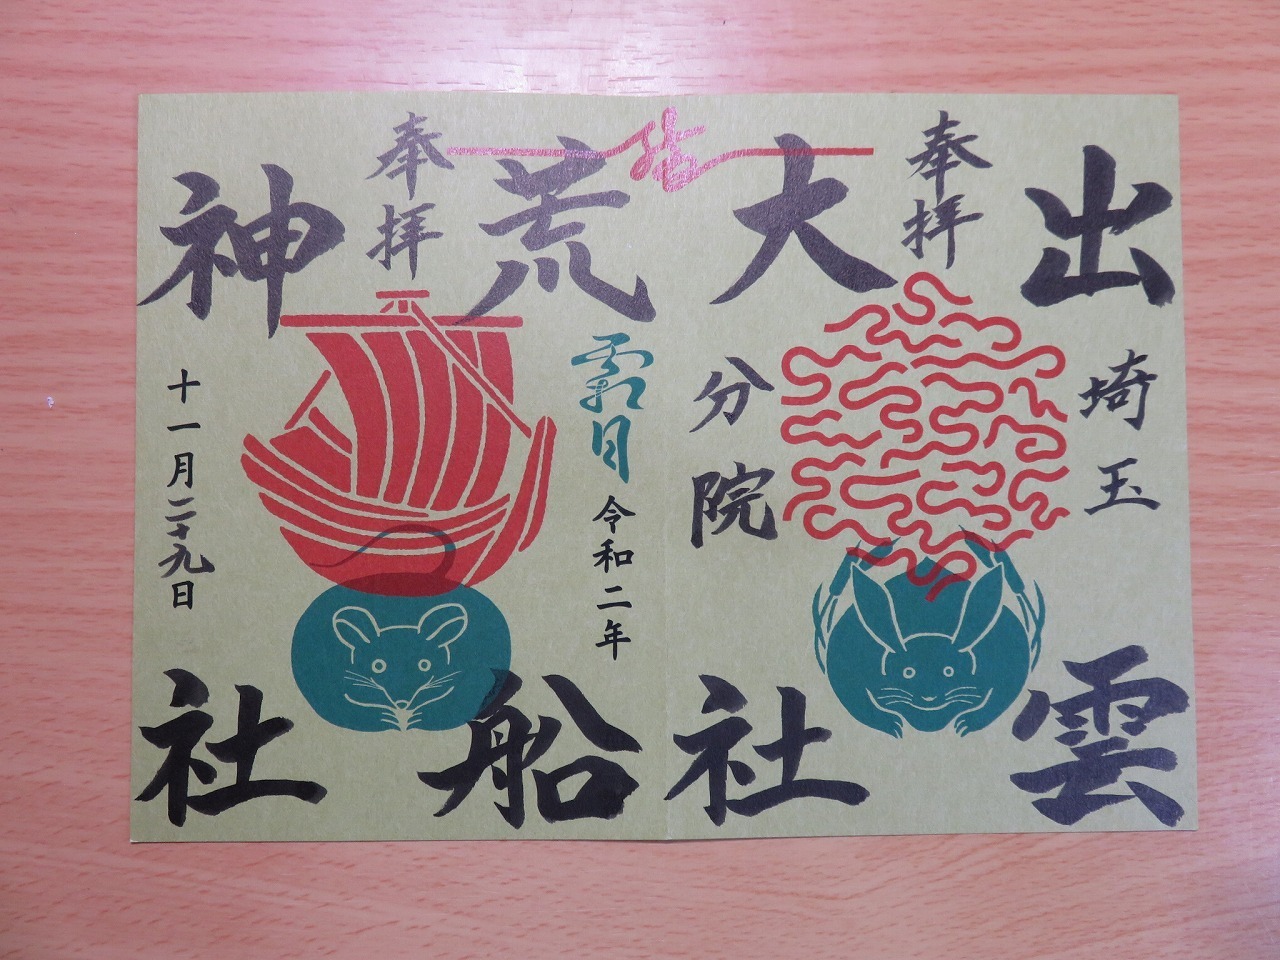 奉拝
出雲
大社
埼玉
分院
結
奉拝
荒船
神社
霜月
令和二年
十一月二十九日